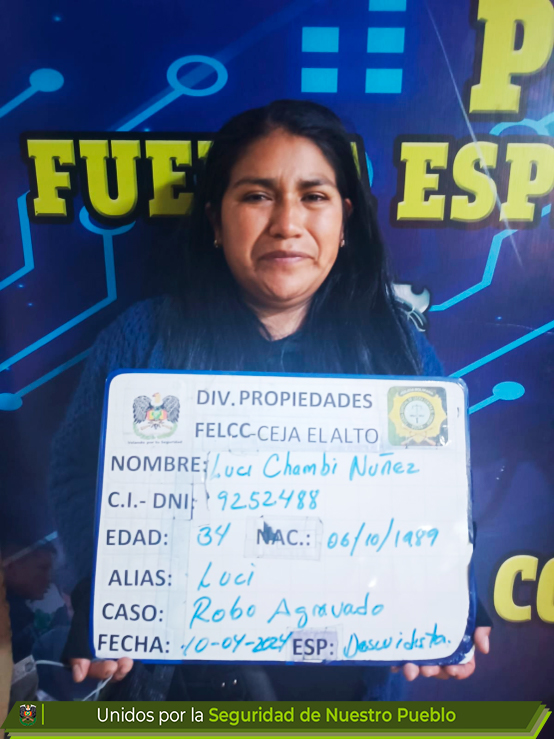 P
FUE
ESP
DIV. PROPIEDADES
FELCC-CEJA EL ALTO
NOMBRE: Luci Chambi Nuñez
C.I.- DNI: 9252488
EDAD: 34 NAC.: 06/10/1989
ALIAS: Luci
CASO: Robo Agravado
FECHA: 10-04-2024 ESP: Descuidista.
CO
Unidos por la Seguridad de Nuestro Pueblo